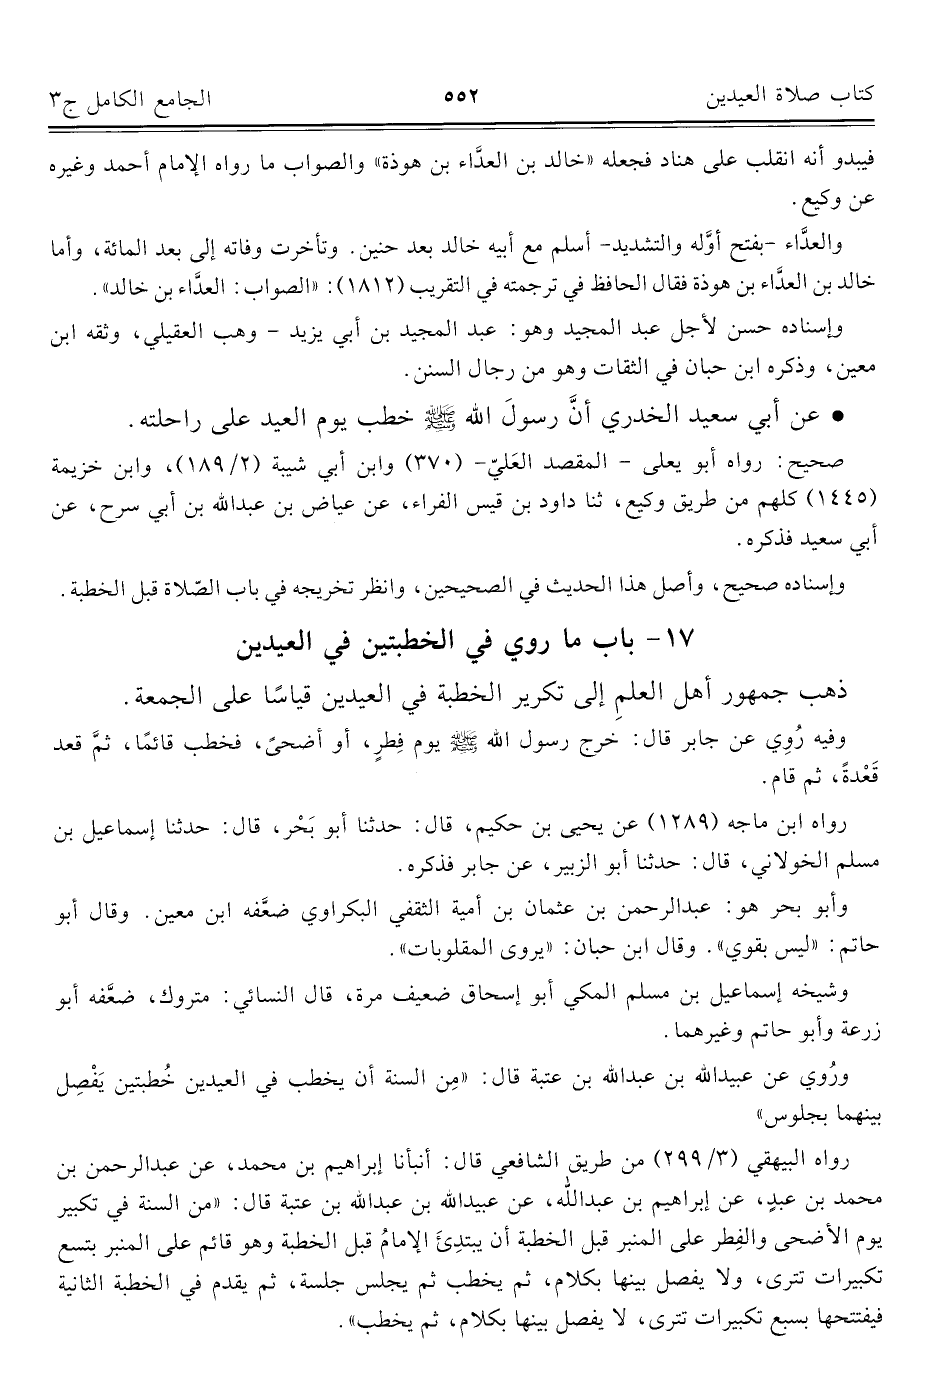 كتاب صلاة العيدين ٥٥٢ الجامع الكامل ج٣
فيبدو أنه انقلب على هناد فجعله «خالد بن العدَّاء بن هوذة» والصواب ما رواه الإمام أحمد وغيره
عن وكيع.
والعدَّاء -بفتح أوَّله والتشديد- أسلم مع أبيه خالد بعد حنين. وتأخرت وفاته إلى بعد المائة، وأما
خالد بن العدَّاء بن هوذة فقال الحافظ في ترجمته في التقريب (١٨١٢): «الصواب: العدَّاء بن خالد».
وإسناده حسن لأجل عبد المجيد وهو: عبد المجيد بن أبي يزيد - وهب العقيلي، وثقه ابن
معين، وذكره ابن حبان في الثقات وهو من رجال السنن.
● عن أبي سعيد الخدري أنَّ رسولَ الله ﷺ خطب يوم العيد على راحلته.
صحيح: رواه أبو يعلى - المقصد العَليّ- (٣٧٠) وابن أبي شيبة (٢/ ١٨٩)، وابن خزيمة
(١٤٤٥) كلهم من طريق وكيع، ثنا داود بن قيس الفراء، عن عياض بن عبدالله بن أبي سرح، عن
أبي سعيد فذكره.
وإسناده صحيح، وأصل هذا الحديث في الصحيحين، وانظر تخريجه في باب الصّلاة قبل الخطبة.
١٧- باب ما روي في الخطبتين في العيدين
ذهب جمهور أهل العلمِ إلى تكرير الخطبة في العيدين قياسًا على الجمعة.
وفيه رُوِي عن جابر قال: خرج رسول الله ﷺ يوم فِطرٍ، أو أضحىً، فخطب قائمًا، ثمَّ قعد
قَعْدةً، ثم قام.
رواه ابن ماجه (١٢٨٩) عن يحيى بن حكيم، قال: حدثنا أبو بَحْر، قال: حدثنا إسماعيل بن
مسلم الخولاني، قال: حدثنا أبو الزبير، عن جابر فذكره.
وأبو بحر هو: عبدالرحمن بن عثمان بن أمية الثقفي البكراوي ضعَّفه ابن معين. وقال أبو
حاتم: «ليس بقوي». وقال ابن حبان: «يروى المقلوبات».
وشيخه إسماعيل بن مسلم المكي أبو إسحاق ضعيف مرة، قال النسائي: متروك، ضعَّفه أبو
زرعة وأبو حاتم وغيرهما.
ورُوي عن عبيدالله بن عبدالله بن عتبة قال: «مِن السنة أن يخطب في العيدين خُطبتين يَفْصِل
بينهما بجلوس»
رواه البيهقي (٣/ ٢٩٩) من طريق الشافعي قال: أنبأنا إبراهيم بن محمد، عن عبدالرحمن بن
محمد بن عبدٍ، عن إبراهيم بن عبدالله، عن عبيدالله بن عبدالله بن عتبة قال: «من السنة في تكبير
يوم الأضحى والفِطر على المنبر قبل الخطبة أن يبتدِئَ الإمامُ قبل الخطبة وهو قائم على المنبر بتسع
تكبيرات تترى، ولا يفصل بينها بكلام، ثم يخطب ثم يجلس جلسة، ثم يقدم في الخطبة الثانية
فيفتتحها بسبع تكبيرات تترى، لا يفصل بينها بكلام، ثم يخطب».